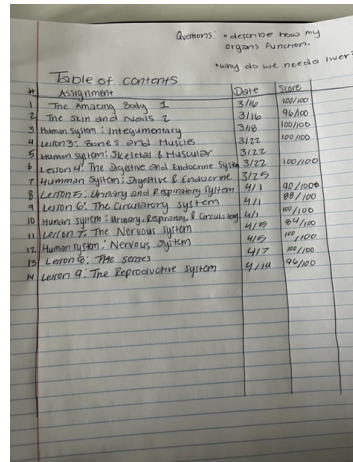 Questions: • describe how my
organs function.
• why do we need a liver?
Table of contents
# Assignment Date Score
1 The Amazing Body 1 3/16 100/100
2 The Skin and Nails 2 3/16 96/100
3 Human system: Integumentary 3/18 100/100
4 Lesson 3: Bones and Muscles 3/22 100/100
5 Human system: Skeletal & Muscular 3/22
6 Lesson 4: The Digestive and Endocrine System 3/22 100/100
7 Humman System: Digestive & Endocrine 3/25
8 Lesson 5: Urinary and Respiratory System 4/1 90/100
9 Lesson 6: The Circulatory system 4/1 88/100
10 Human system: Urinary, Respiratory, & Circulatory 4/1 100/100
11 Lesson 7: The Nervous System 4/5 84/100
12 Human system: Nervous System 4/5 100/100
13 Lesson 8: The senses 4/7 100/100
14 Lesson 9: The Reproductive system 4/14 96/100